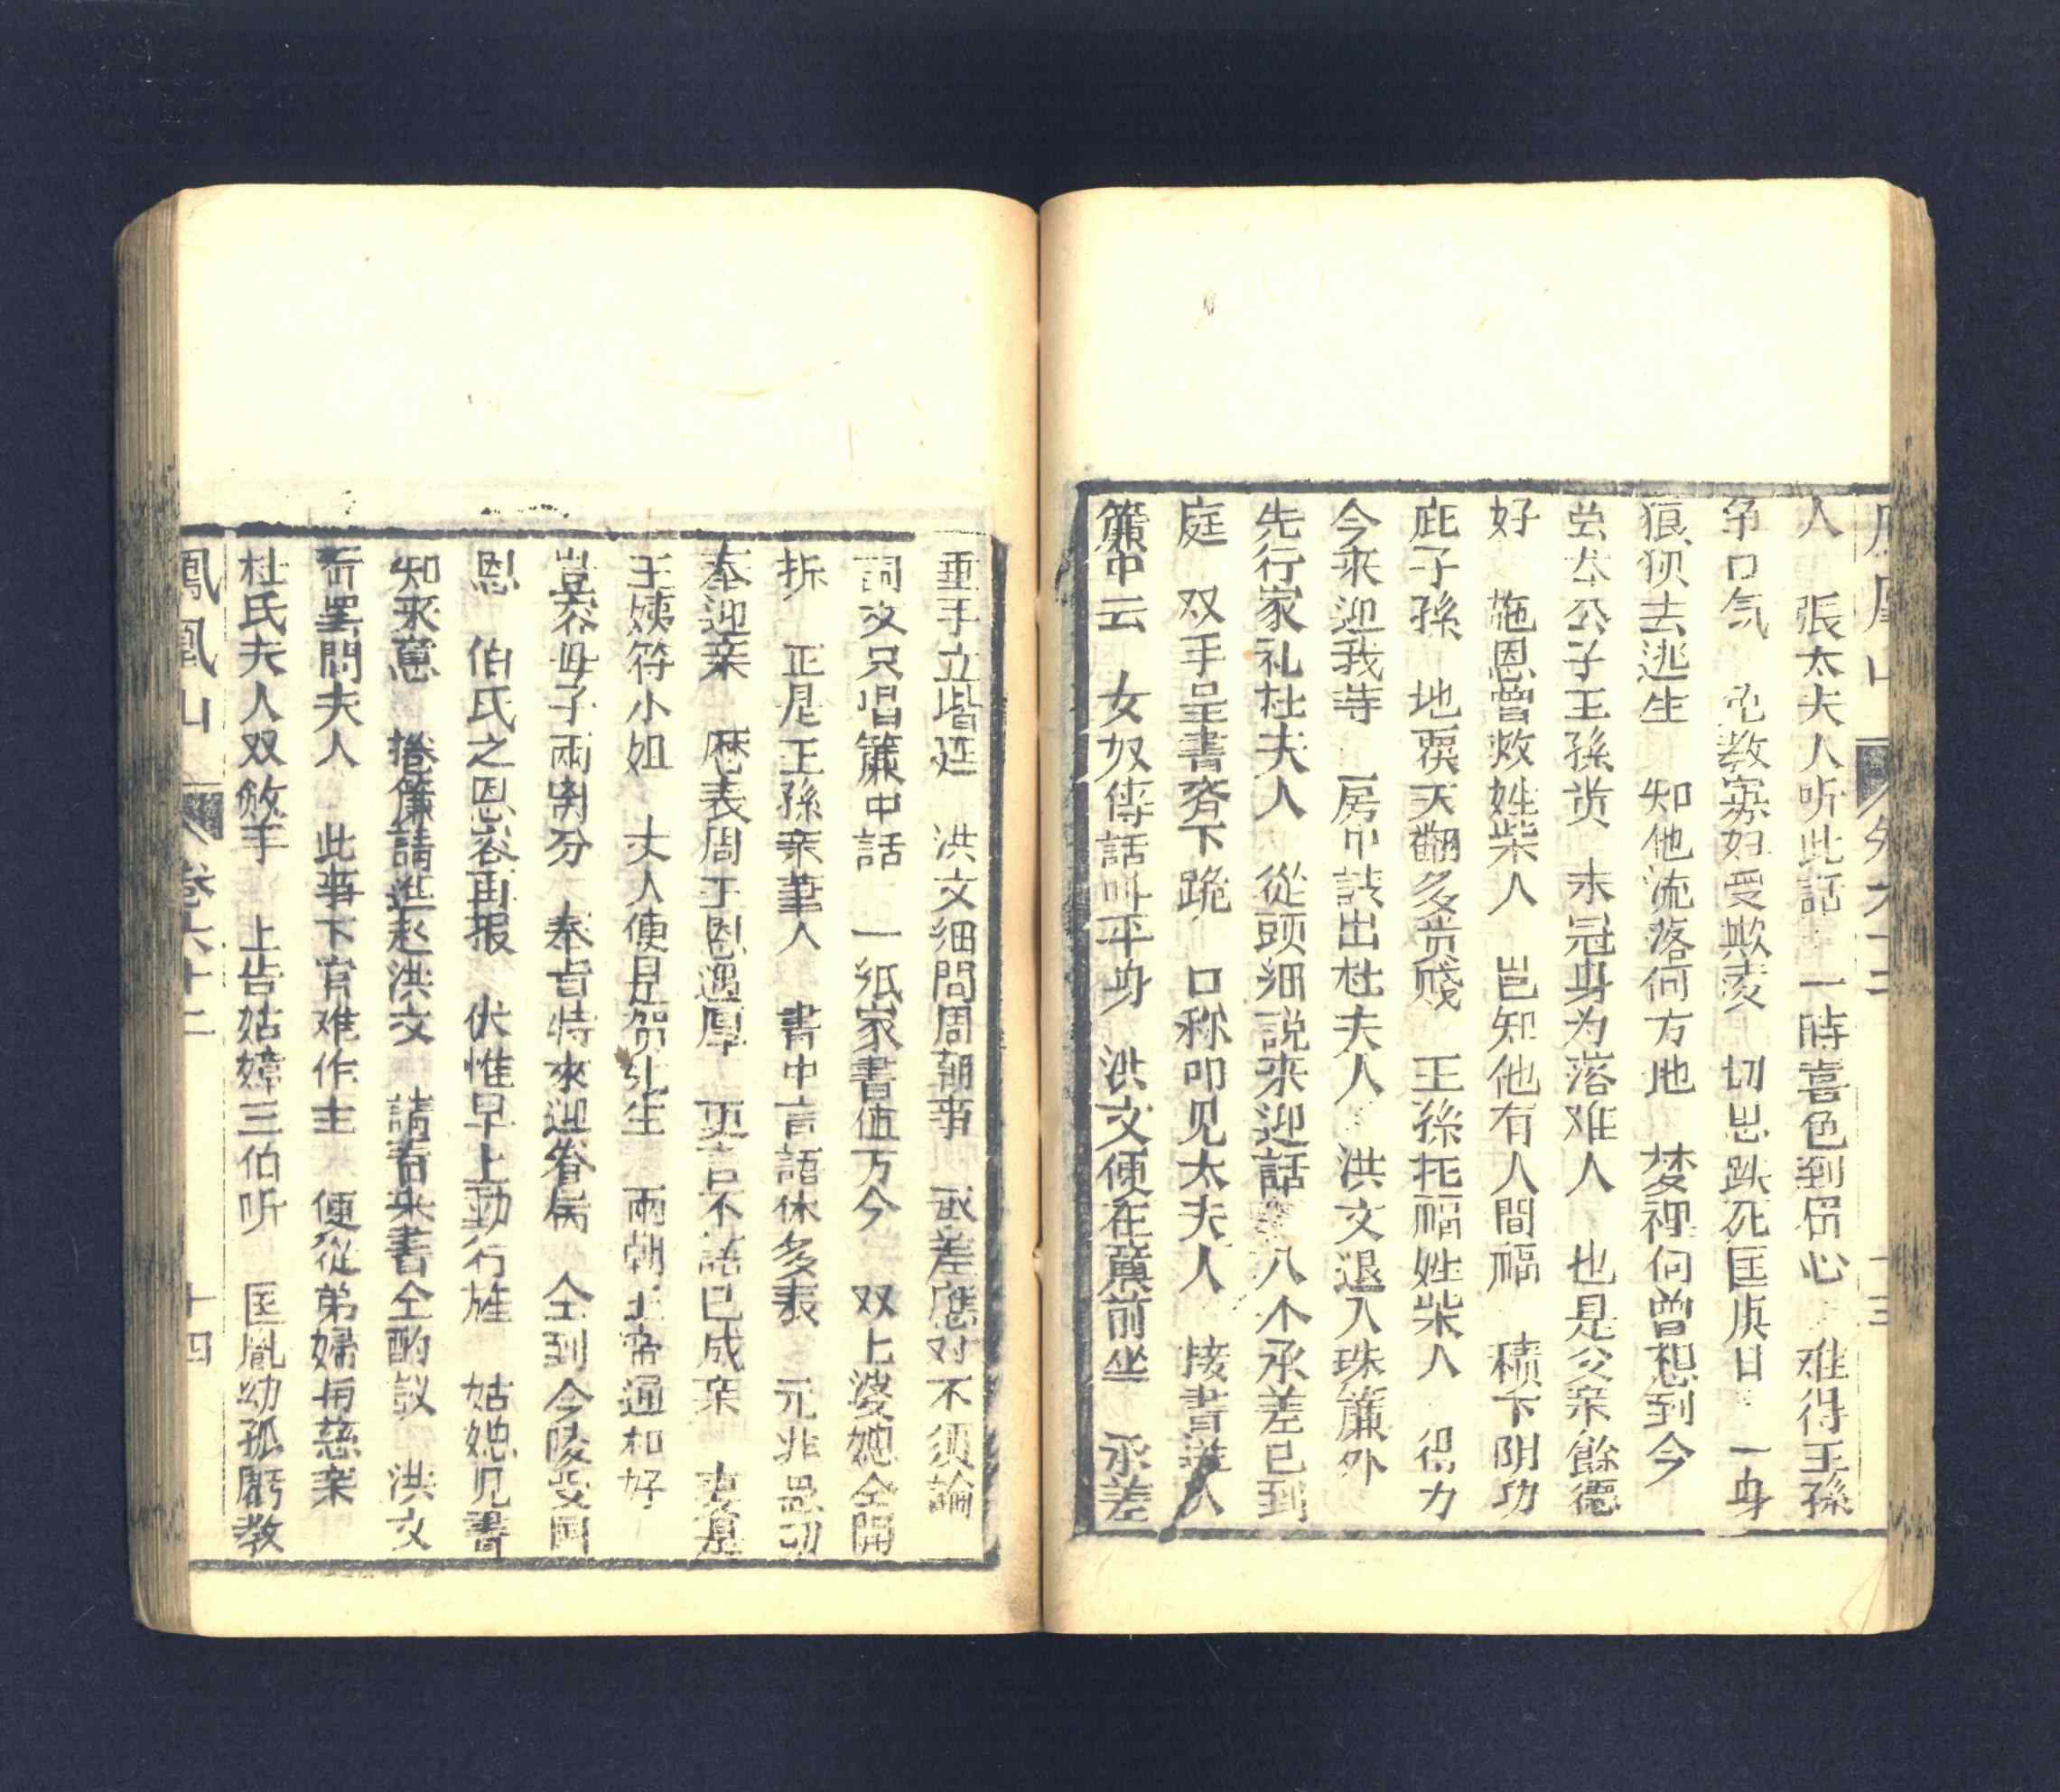 人　張太夫人听此話　一時喜色到眉心　难得王孫
争口气　免教寡妇受欺凌　切思跌死匡　日　一身
狼狽去逃生　知他流落何方地　梦裡何曾想到今
虽本公子王孫贵　未冠身为落难人　也是父亲餘德
好　施恩曾救姓柴人　岂知他有人間福　積下阴功
庇子孫　地覆天翻多贵贱　王孫托福姓柴人　得力
今來迎我等　房中請出杜夫人　洪文退入珠簾外
先行家礼杜夫人　從頭細説來迎話　八个承差已到
庭　双手呈書齐下跪　口称叩见太夫人　接書進入
簾中云　女奴傳話叫平身　洪文便在簾前坐　承差
垂手立堦廷　洪文細問周朝事　承差應对不須論
詞文只唱簾中話　一紙家書值万今　双上婆媳仝開
拆　正是王孫亲筆人　書中言語休多表　元非思切
奉迎亲　歷表周王恩遇厚　更言不語已成亲　妻是
王姨符小姐　丈人便是贺先生　兩朝王帝通和好
豈容母子兩割分　奉旨特來迎眷属　仝到今陵受國
恩　伯氏之恩容再报　伏惟早上動行旌　姑媳见書
知來意　捲簾請進赵洪文　請看來書仝酌議　洪文
看罢問夫人　此事下官难作主　便從弟婦冉慈亲
杜氏夫人双敛手　上告姑嫜三伯听　匡胤幼孤虧教
鳳凰山　卷六十二　十四